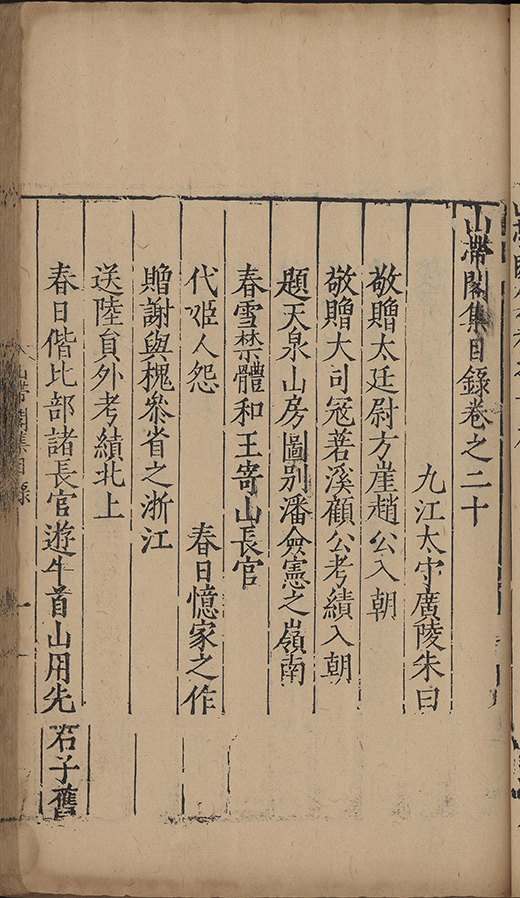 山帶閣集目錄卷之二十
九江太守廣陵朱曰
敬贈太廷尉方崖趙公入朝
敬贈大司寇箬溪顧公考績入朝
題天泉山房圖別潘僉憲之嶺南
春雪禁體和王寄山長官
代姬人怨 春日憶家之作
贈謝與槐叅省之浙江
送陸員外考績北上
春日偕比部諸長官遊牛首山用先
石子舊
山帶閣集目錄 一